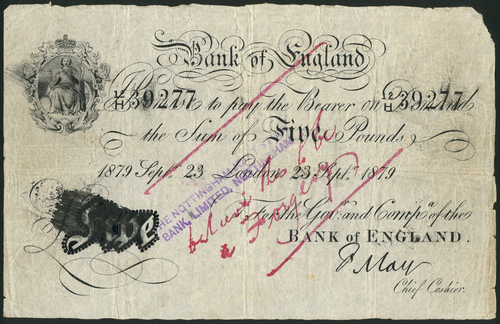 Bank of England
39277 to pay the Bearer on 39277
the Sum of Five Pounds
1879 Sept. 23 London 23 Sept. 1879
THE NOTTINGHAM
BANK, LIMITED, NOTTINGHAM
a Forgery
For the Gov.r and Comp.a of the
BANK of ENGLAND.
Five
F May
Chief Cashier.